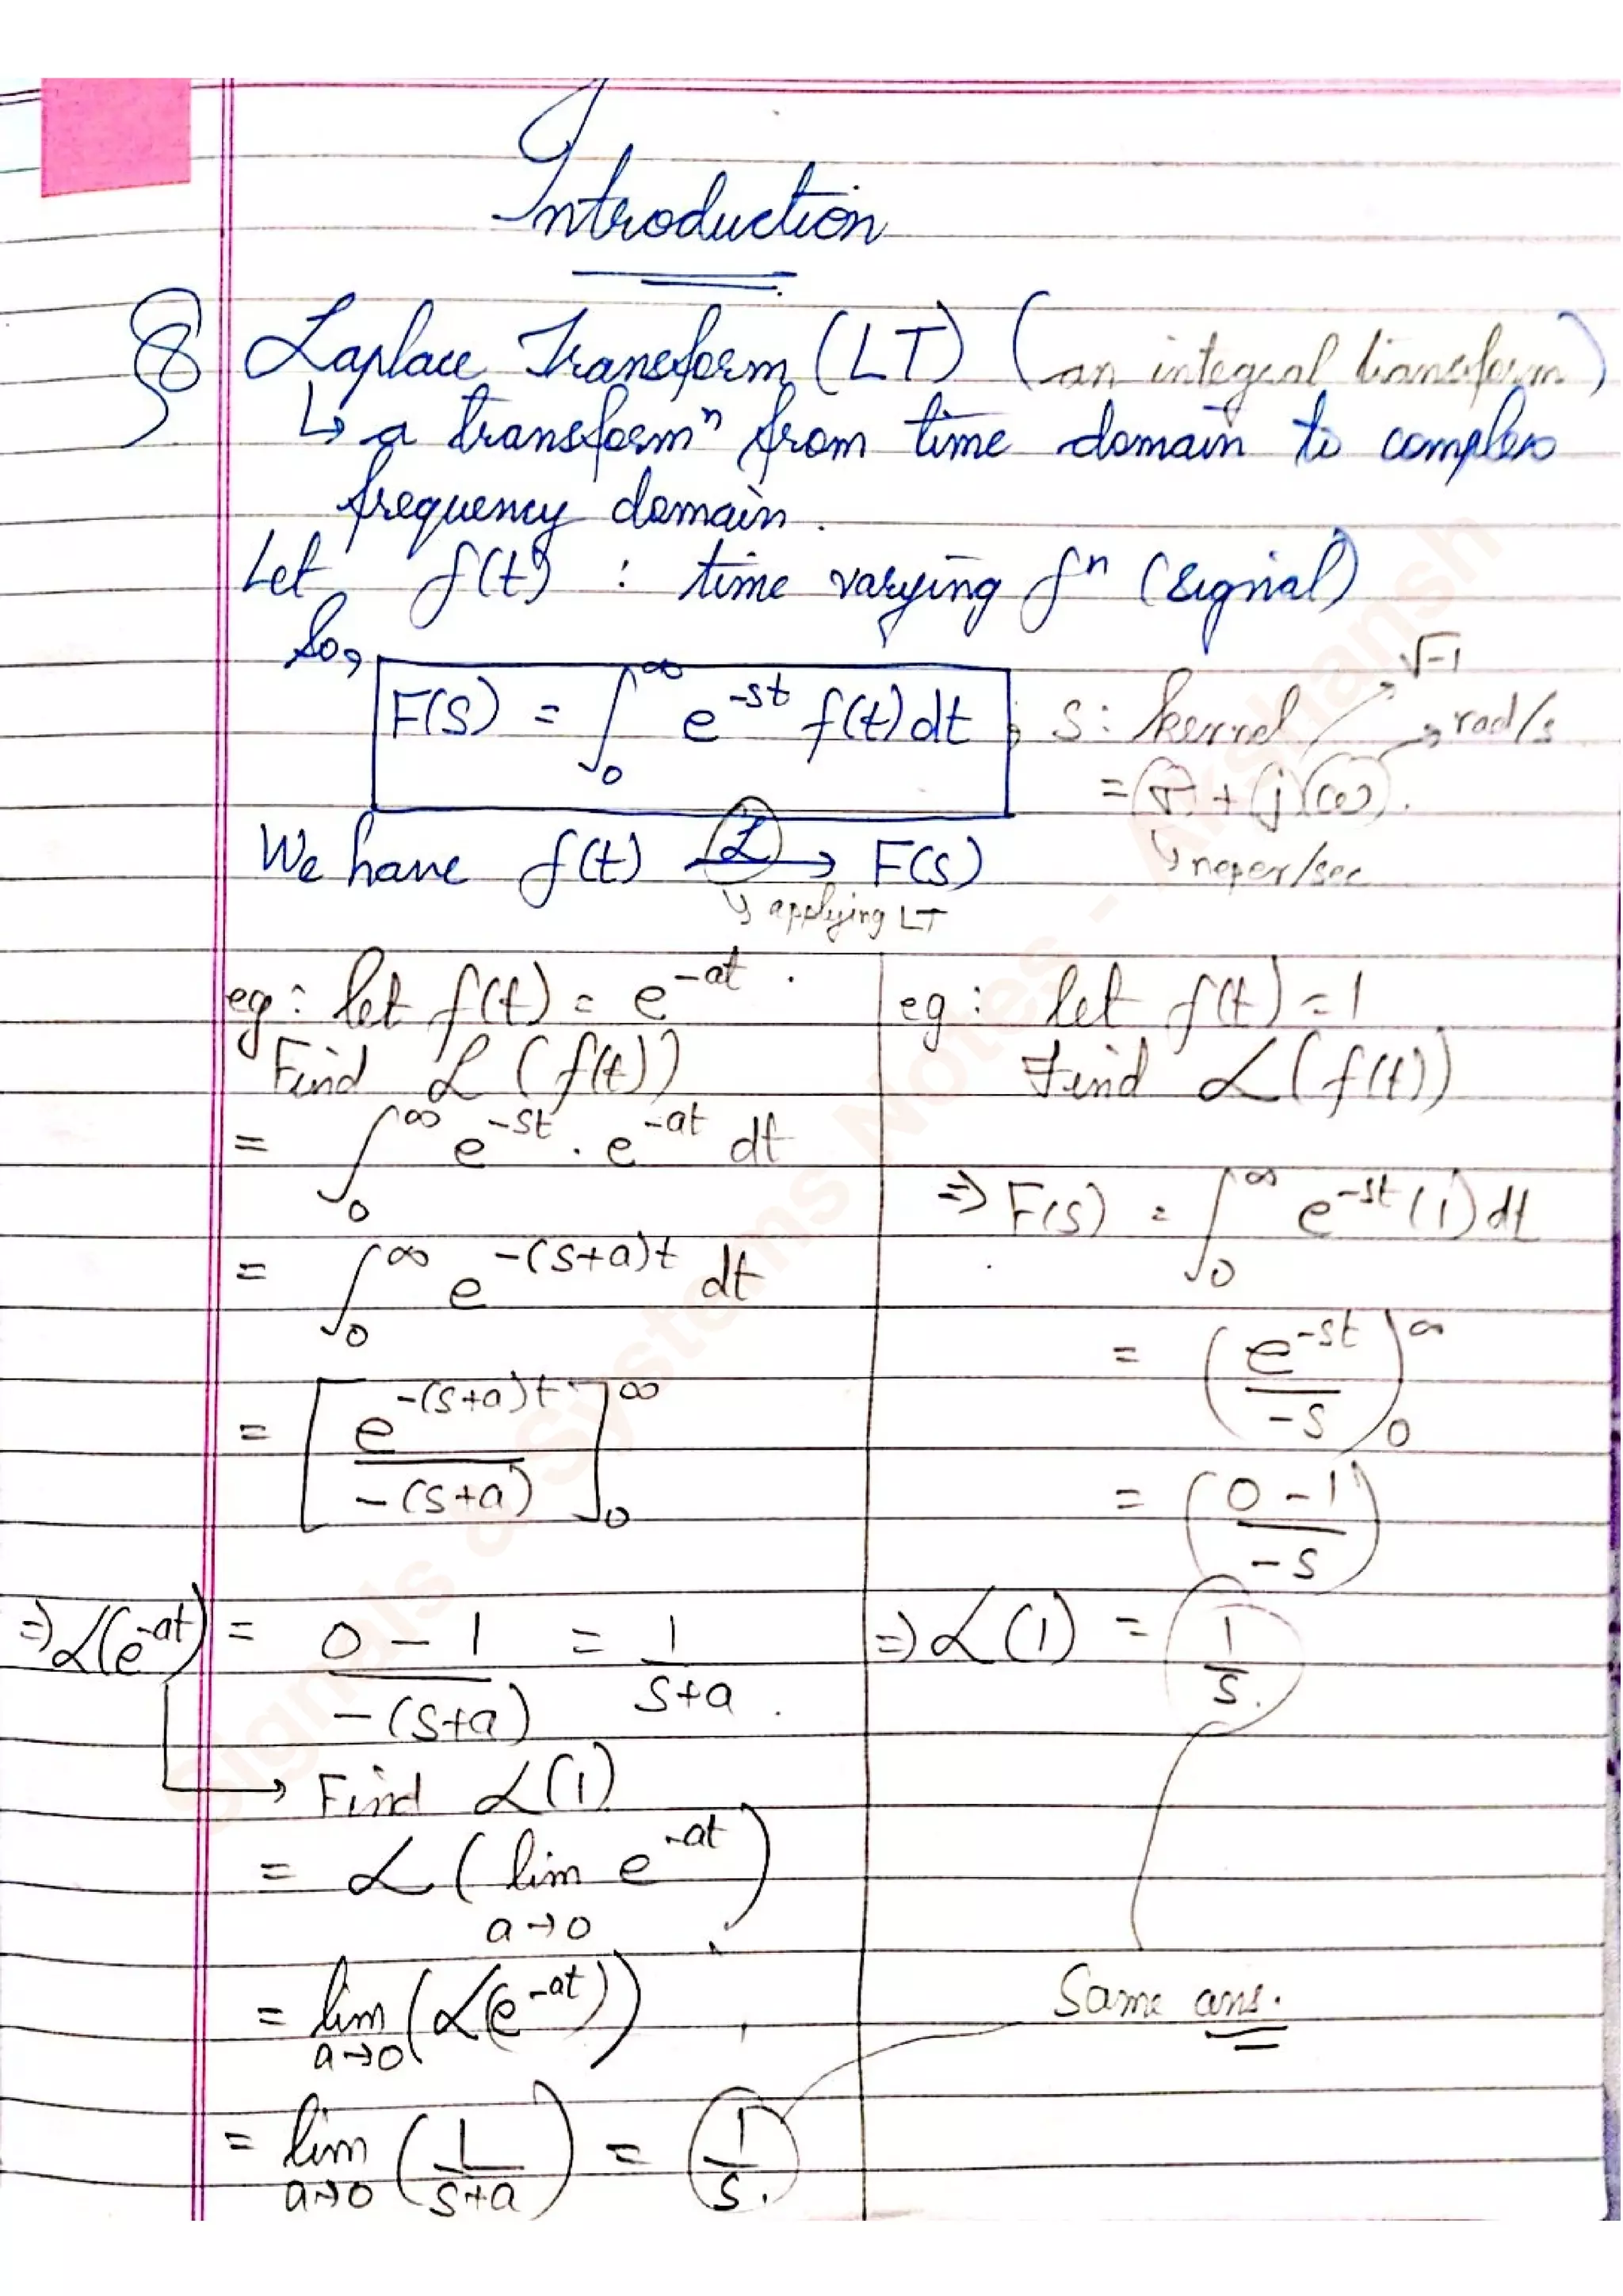 Introduction
§ Laplace Transform (LT) (an integral transform)
↳ a transformⁿ from time domain to complex
frequency domain.
Let f(t) : time varying fⁿ (signal)
So,
F(s) = ∫₀^∞ e^-st f(t) dt ; s : kernel
√-1
rad/s
= σ + jω.
neper/sec
We have f(t) —ℒ→ F(s)
↳ applying LT
eg : let f(t) = e^-at .
Find ℒ(f(t))
= ∫₀^∞ e^-st . e^-at dt
= ∫₀^∞ e^-(s+a)t dt
= [e^-(s+a)t / -(s+a)]₀^∞
⇒ ℒ(e^-at) = (0 - 1) / -(s+a) = 1 / (s+a) .
→ Find ℒ(1)
= ℒ( lim a→0 e^-at )
= lim a→0 (ℒ(e^-at))
= lim a→0 (1 / (s+a)) = 1/s .
eg : let f(t) = 1
Find ℒ(f(t))
⇒ F(s) = ∫₀^∞ e^-st (1) dt
= (e^-st / -s)₀^∞
= ((0 - 1) / -s)
⇒ ℒ(1) = 1/s .
Same ans.
Signals & Systems Notes - Akshansh